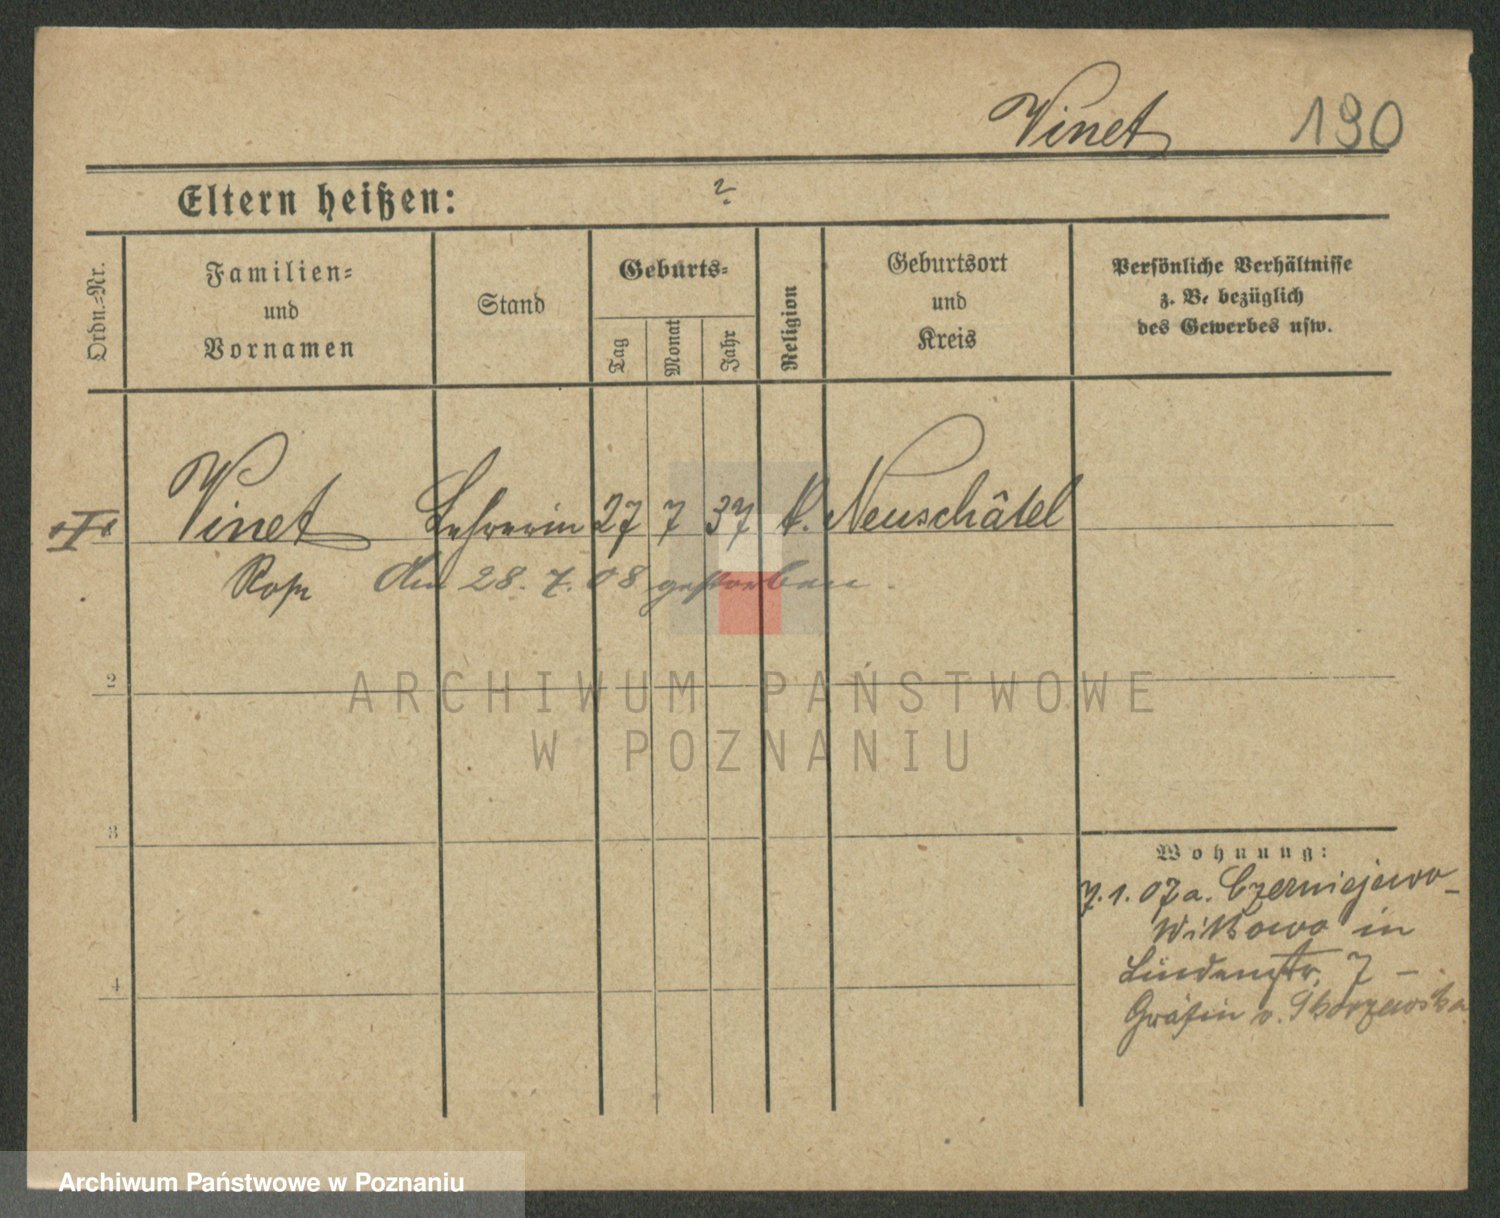 Vinet 190
Eltern heißen: ?
Ordn.-Nr.
Familien-
und
Vornamen
Stand
Geburts-
Tag
Monat
Jahr
Religion
Geburtsort
und
Kreis
Persönliche Verhältnisse
z. B. bezüglich
des Gewerbes usw.
Vinet Lehrerin 27 7 37 k. Neuschâtel
Rose den 28. 7. 08 gestorben.
2
3
4
Wohnung:
7.1.07 a. Czerniejewo-
Witkowo in
Lindenstr. 7 –
Gräfin v. Skorzewska
ARCHIWUM PAŃSTWOWE
W POZNANIU
Archiwum Państwowe w Poznaniu